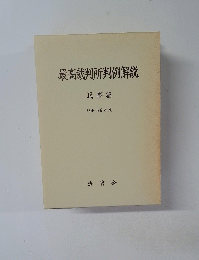 最高裁判所判例解説
民事篇
法曹会